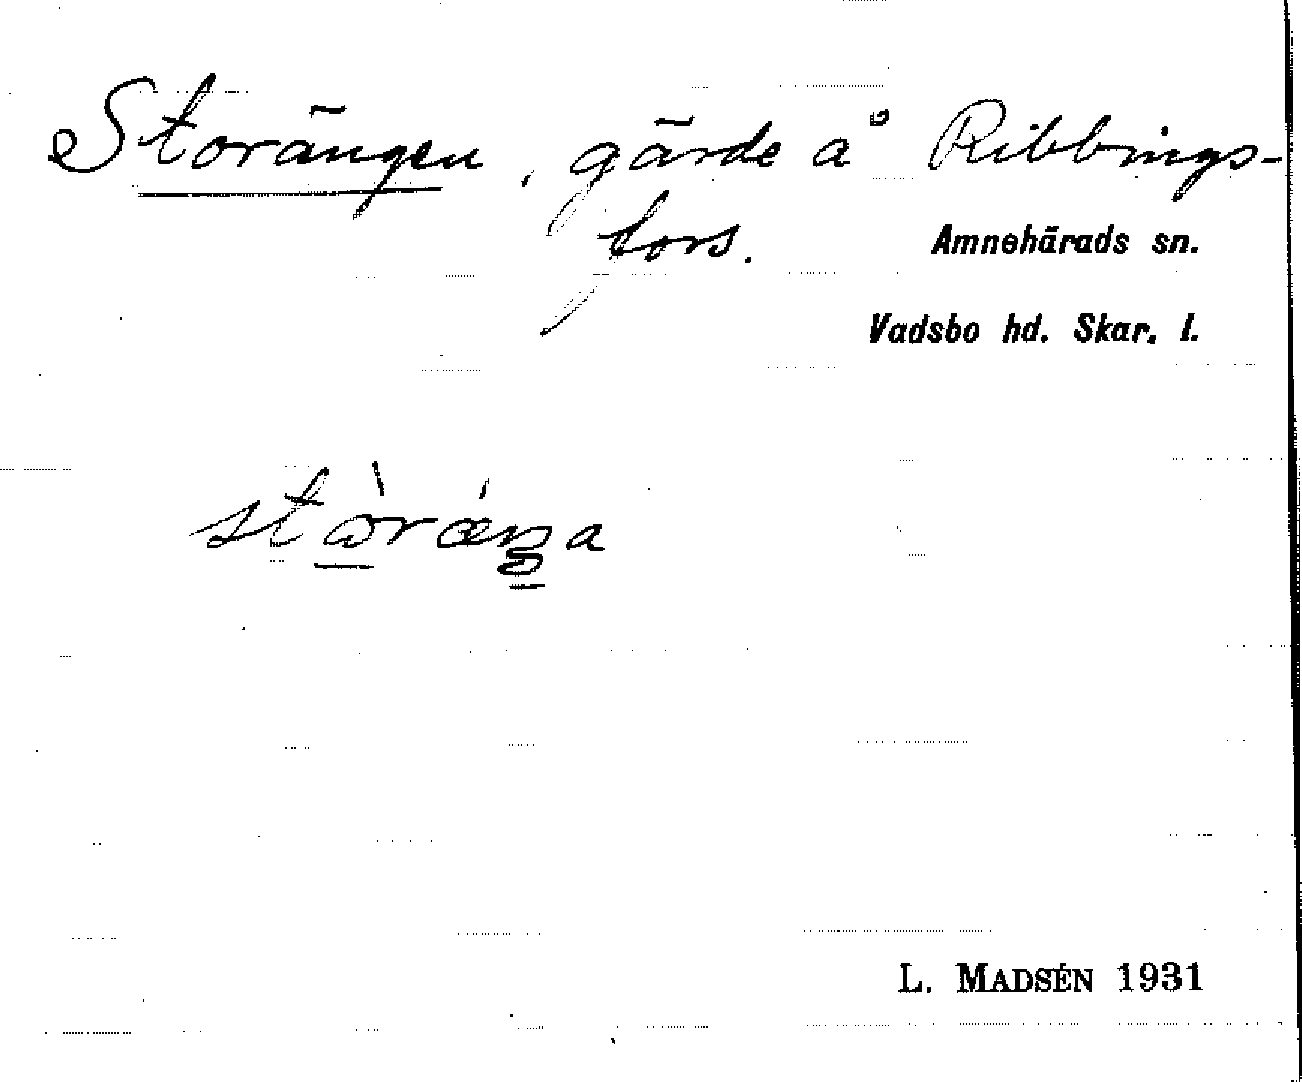 Storängen, gärde å Ribbings-
fors.
Amnehärads sn.
Vadsbo hd. Skar. l.
L. MADSÉN 1931